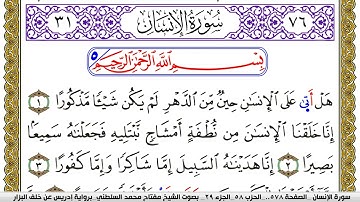 ٧٦ سورة الإنسان ٣١
بِسْمِ اللَّهِ الرَّحْمَٰنِ الرَّحِيمِ
هَلْ أَتَىٰ عَلَى الْإِنسَٰنِ حِينٌ مِّنَ الدَّهْرِ لَمْ يَكُن شَيْـًٔا مَّذْكُورًا ١
إِنَّا خَلَقْنَا الْإِنسَٰنَ مِن نُّطْفَةٍ أَمْشَاجٍ نَّبْتَلِيهِ فَجَعَلْنَٰهُ سَمِيعًا
بَصِيرًا ٢ إِنَّا هَدَيْنَٰهُ السَّبِيلَ إِمَّا شَاكِرًا وَإِمَّا كَفُورًا ٣
سورة الإنسان الصفحة ٥٧٨... الحزب ٥٨ الجزء ٢٩ بصوت الشيخ مفتاح محمد السلطني برواية إدريس عن خلف البزار